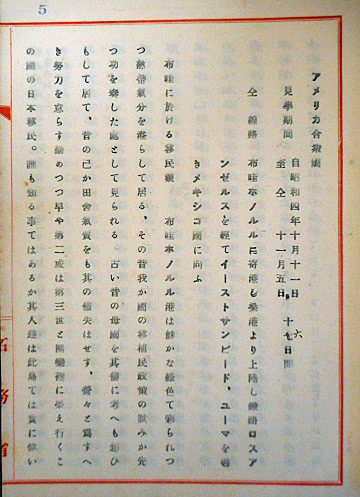 5
アメリカ合衆國
見學期間 自昭和四年十月十一日
至仝 十一月五日。十六日間
仝 線路 布哇ホノルルに寄港し桑港より上陸し鐵路ロスア
ンゼルスを經てイーストサンピード、ユーマを
きメキシコ國に向ふ
布哇に於ける移民 布哇ホノルル港は鮮かな綠色で彩られつ
つ熱帶氣分を漲らして居る。その昔我か國の移植民政策の試みか先
つ功を奏した處として見られる。古い昔の母國を其儘に考へも
もして居て、昔の己か田舎氣質をも其の儘失はせす、營々と爲すへ
き努力を怠らす勤めつつ早や第二或は第三世と 榮え行くこ
の國の日本移民。誰も知る事てはあるか其人達は此島ては實に偉い
務省